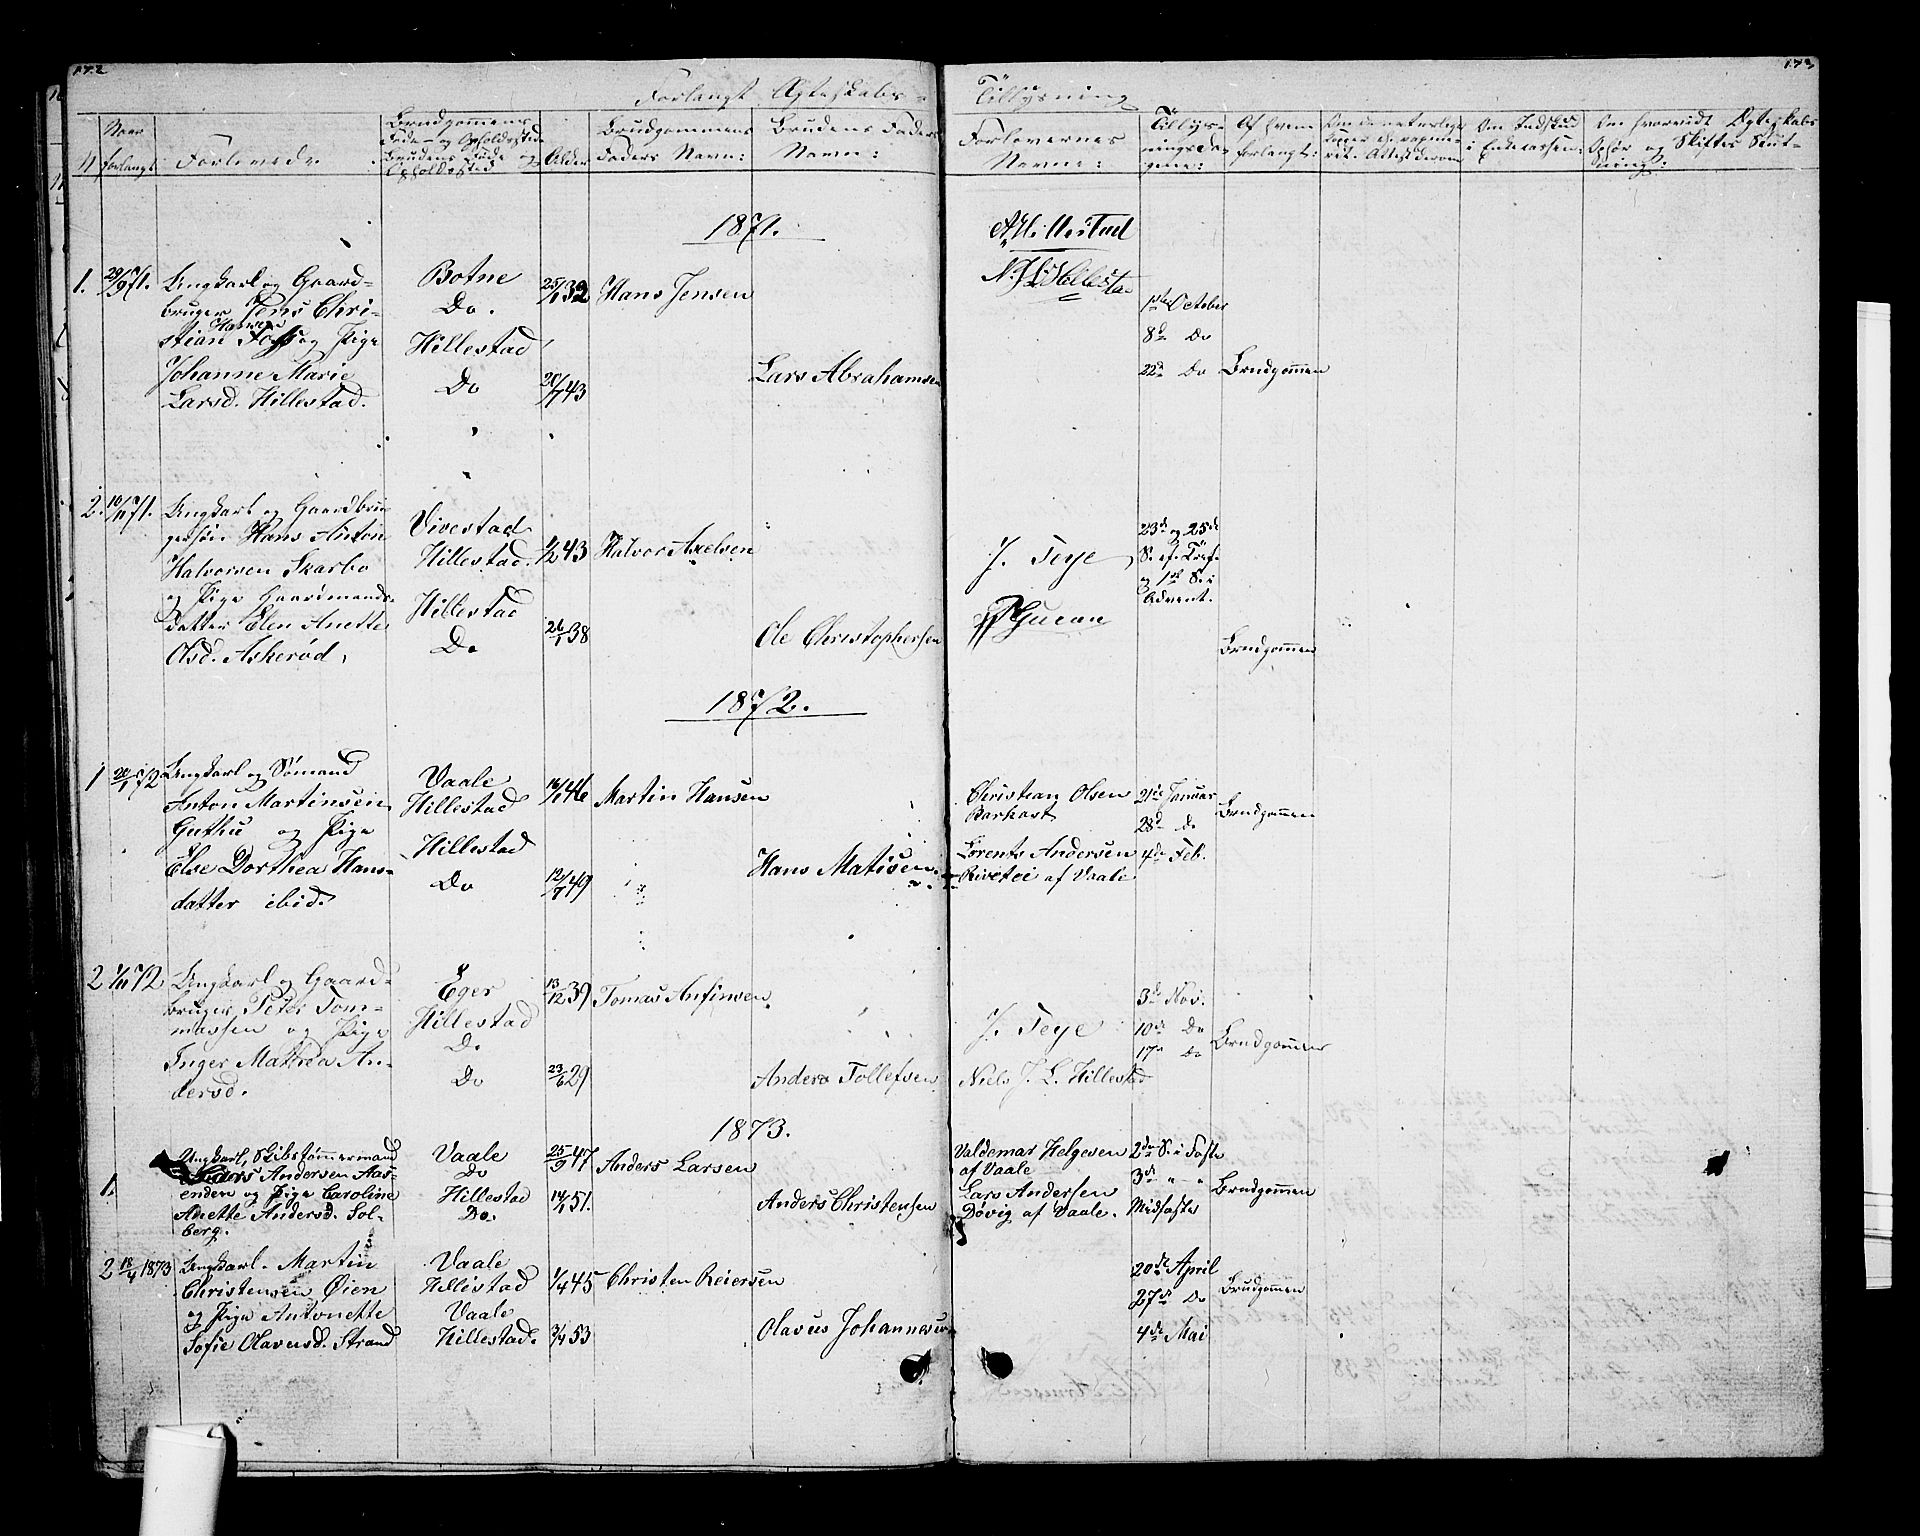 172
173
Forlangt Ægteskabs-
Tillysning
N
Naar forlangt.
Forlovede.
Brudgommens Føde- og Opholdssted
Brudens Føde og Opholdssted
Alder
Brudgommens Faders Navn:
Brudens Faders Navn:
Forlovernes Navne:
Tillysningsdagene:
Af hvem forlangt:
1871.
1. 29/9 71.
Ungkarl og Gaard-
bruger Jens Chri-
stian Hansen
Foss og Pige
Johanne Marie
Larsd. Hillestad.
Botne
Do.
Hillestad
Do
25/1 32
20/7 43
Hans Jensen
Lars Abrahamsen
A. Hillestad
N. J. L. Hillestad
1ste October
8de Do
22de Do
Brudgommen
2. 10/11 71.
Ungkarl og Gaardbru-
gersøn Hans Anton
Halvorsen Skarbo
og Pige Gaardmands-
datter Elen Anette
Olsd. Askerød,
Vivestad
Hillestad.
Hillestad
Do
1/2 43
26/1 38
Halvor Axelsen
Ole Christophersen
J. Teye
23de og 25de
S. ef. Tref.
og 1ste S. i
Advent.
Brudgommen
1872.
1 20/1 72
Ungkarl og Sømand
Anton Martinsen
Guthu og Pige
Else Dorthea Hans-
datter ibid.
Vaale
Hillestad
Hillestad
Do
16/1 46
12/7 49
Martin Hansen
Hans Matisen
Christian Olsen
Barkost
Lorents Andersen
af Vaale
21de Januar
28de do
4de Feb.
Brudgommen
2 1/11 72
Ungkarl og Gaard-
bruger Peter Tom-
massen og Pige
Inger Mathea An-
dersd.
Eger
Hillestad
Do
Do
13/12 39
23/6 29
Tomas Anfinsen
Anders Tollefsen
J. Teye
Niels J. L. Hillestad
3de Nov.
10de Do
17de Do
Brudgommen
1873.
1.
Ungkarl, Skibstømmermand
Anders Andersen Aas-
enden og Pige Caroline
Anette Andersd. Sol-
berg.
Vaale
Do
Hillestad
Do.
25/9 47
14/1 51.
Anders Larsen
Anders Christensen
Valdemar Helgesen
af Vaale
Lars Andersen
Døvig af Vaale.
2den S. i Faste
3de " - "
Midfaste
Brudgommen
2 18/4 1873
Ungkarl. Martin
Christensen Øien
og Pige Antonette
Sofie Olavusd. Strand
Vaale
Hillestad
Vaale
Hillestad.
1/4 45
3/4 53
Christen Reiersen
Olavus Johannesen
20de April
27de Do
4de Mai
Brudgommen